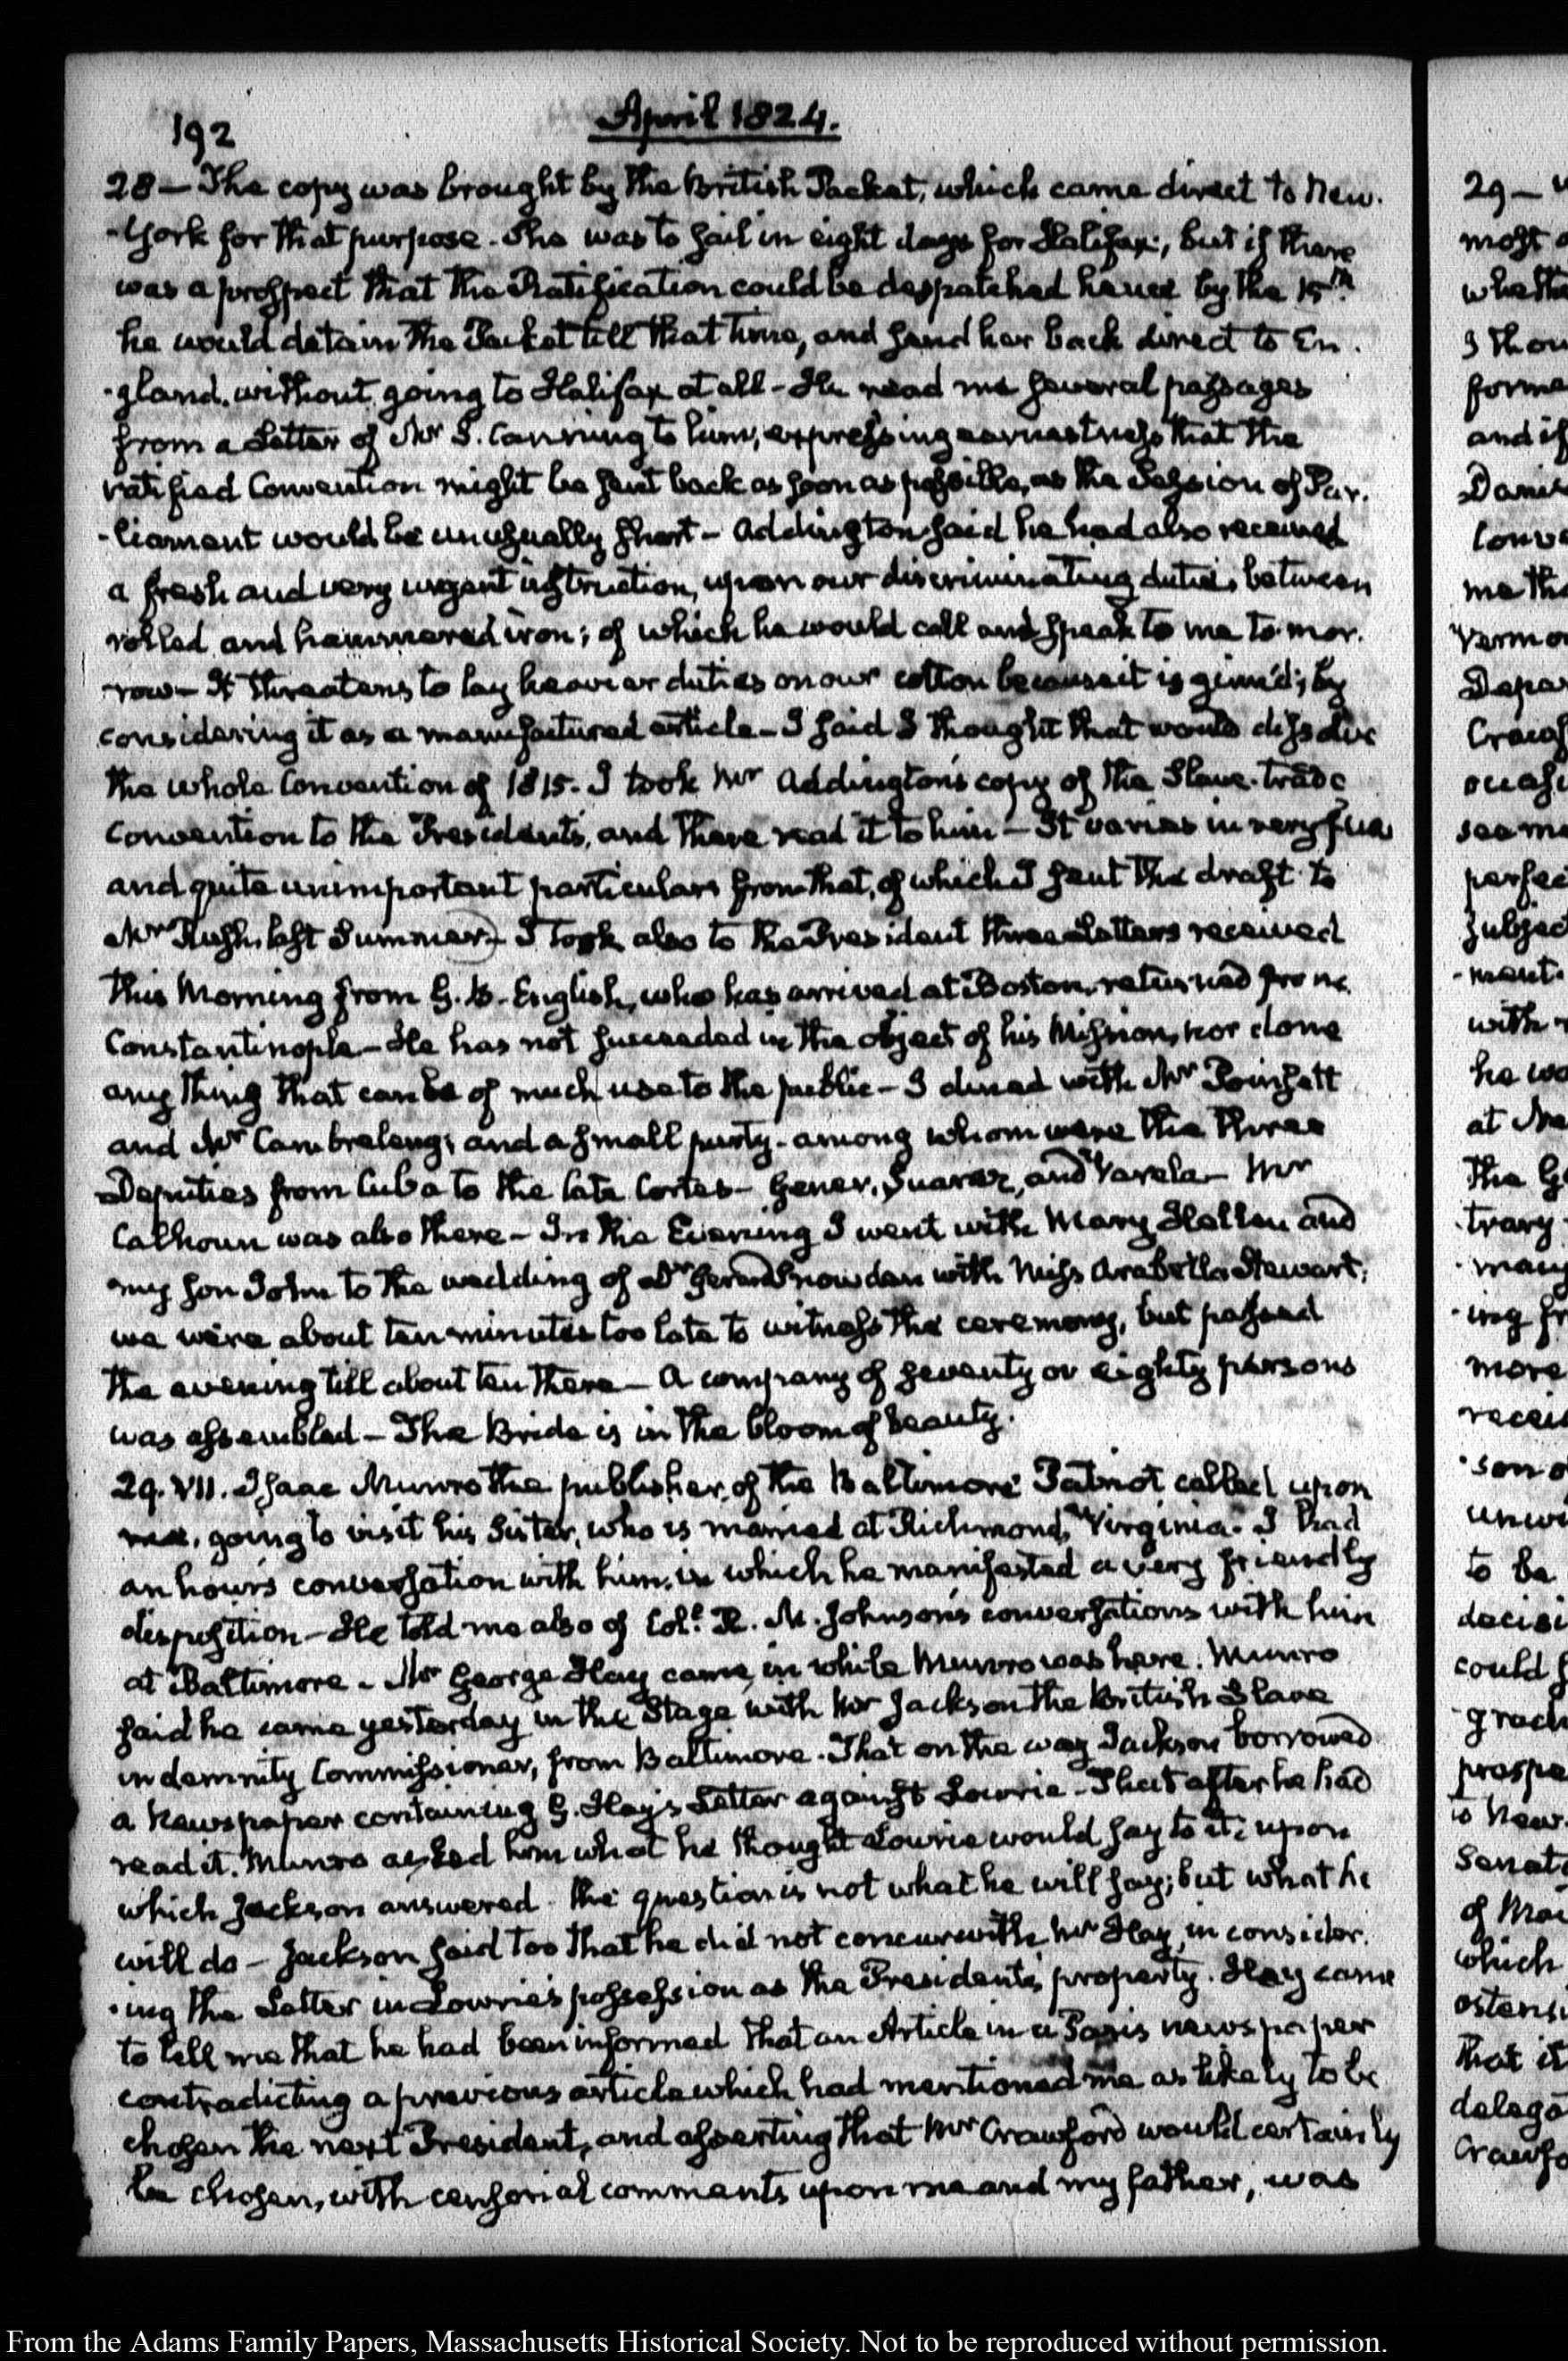 192
April 1824.
28 — The copy was brought by the British Packet, which came direct to New-
-York for that purpose. She was to sail in eight days for Halifax; but if there
was a prospect that the Ratification could be despatched hence by the 15th
he would detain the Packet till that time, and send her back direct to En-
-gland, without going to Halifax at all — He read me several passages
from a Letter of Mr S. Canning to him, expressing earnestness that the
ratified Convention might be sent back as soon as possible, as the Session of Par-
-liament would be unusually short — Addington said he had also received
a fresh and very urgent instruction, upon our discriminating duties between
rolled and hammered iron; of which he would call and speak to me to-mor-
-row — It threatens to lay heavier duties on our cotton because it is ginn'd; by
considering it as a manufactured article — I said I thought that would dissolve
the whole Convention of 1815. I took Mr Addington's copy of the Slave-trade
Convention to the President's, and there read it to him — It varies in very few
and quite unimportant particulars from that, of which I sent the draft to
Mr Rush, last Summer — I took also to the President three Letters received
this Morning from G. B. English, who has arrived at Boston, returned from
Constantinople — He has not succeeded in the object of his Mission, nor done
any thing that can be of much use to the public — I dined with Mr Poinsett
and Mr Cambreleng; and a small party — among whom were the three
Deputies from Cuba to the late Cortes — Gener, Suarez, and Varela — Mr
Calhoun was also there — In the Evening I went with Mary Hellen and
my son John to the wedding of Dr Gerard Snowden with Miss Arabella Stewart;
we were about ten minutes too late to witness the ceremony, but passed
the evening till about ten there — A company of seventy or eighty persons
was assembled — The Bride is in the bloom of beauty.
29. VII. Isaac Munro the publisher, of the Baltimore Patriot called upon
me, going to visit his Sister, who is married at Richmond, Virginia. I had
an hour's conversation with him, in which he manifested a very friendly
disposition — He told me also of Col. R. M. Johnson's conversations with him
at Baltimore. Mr George Hay came in while Munro was here. Munro
said he came yesterday in the Stage with Mr Jackson the British Slave
indemnity Commissioner, from Baltimore. That on the way Jackson borrowed
a Newspaper containing G. Hay's Letter against Lowrie — That after he had
read it, Munro asked him what he thought Lowrie would say to it; upon
which Jackson answered the question is not what he will say; but what he
will do — Jackson said too that he did not concur with Mr Hay, in consider-
-ing the Letter in Lowrie's possession as the President's property. Hay came
to tell me that he had been informed that an Article in a Paris newspaper
contradicting a previous article which had mentioned me as likely to be
chosen the next President, and asserting that Mr Crawford would certainly
be chosen, with censorial comments upon me and my father, was
29 —
most
I
and if
at
the
more
to be
could
of
which
that it
From the Adams Family Papers, Massachusetts Historical Society. Not to be reproduced without permission.